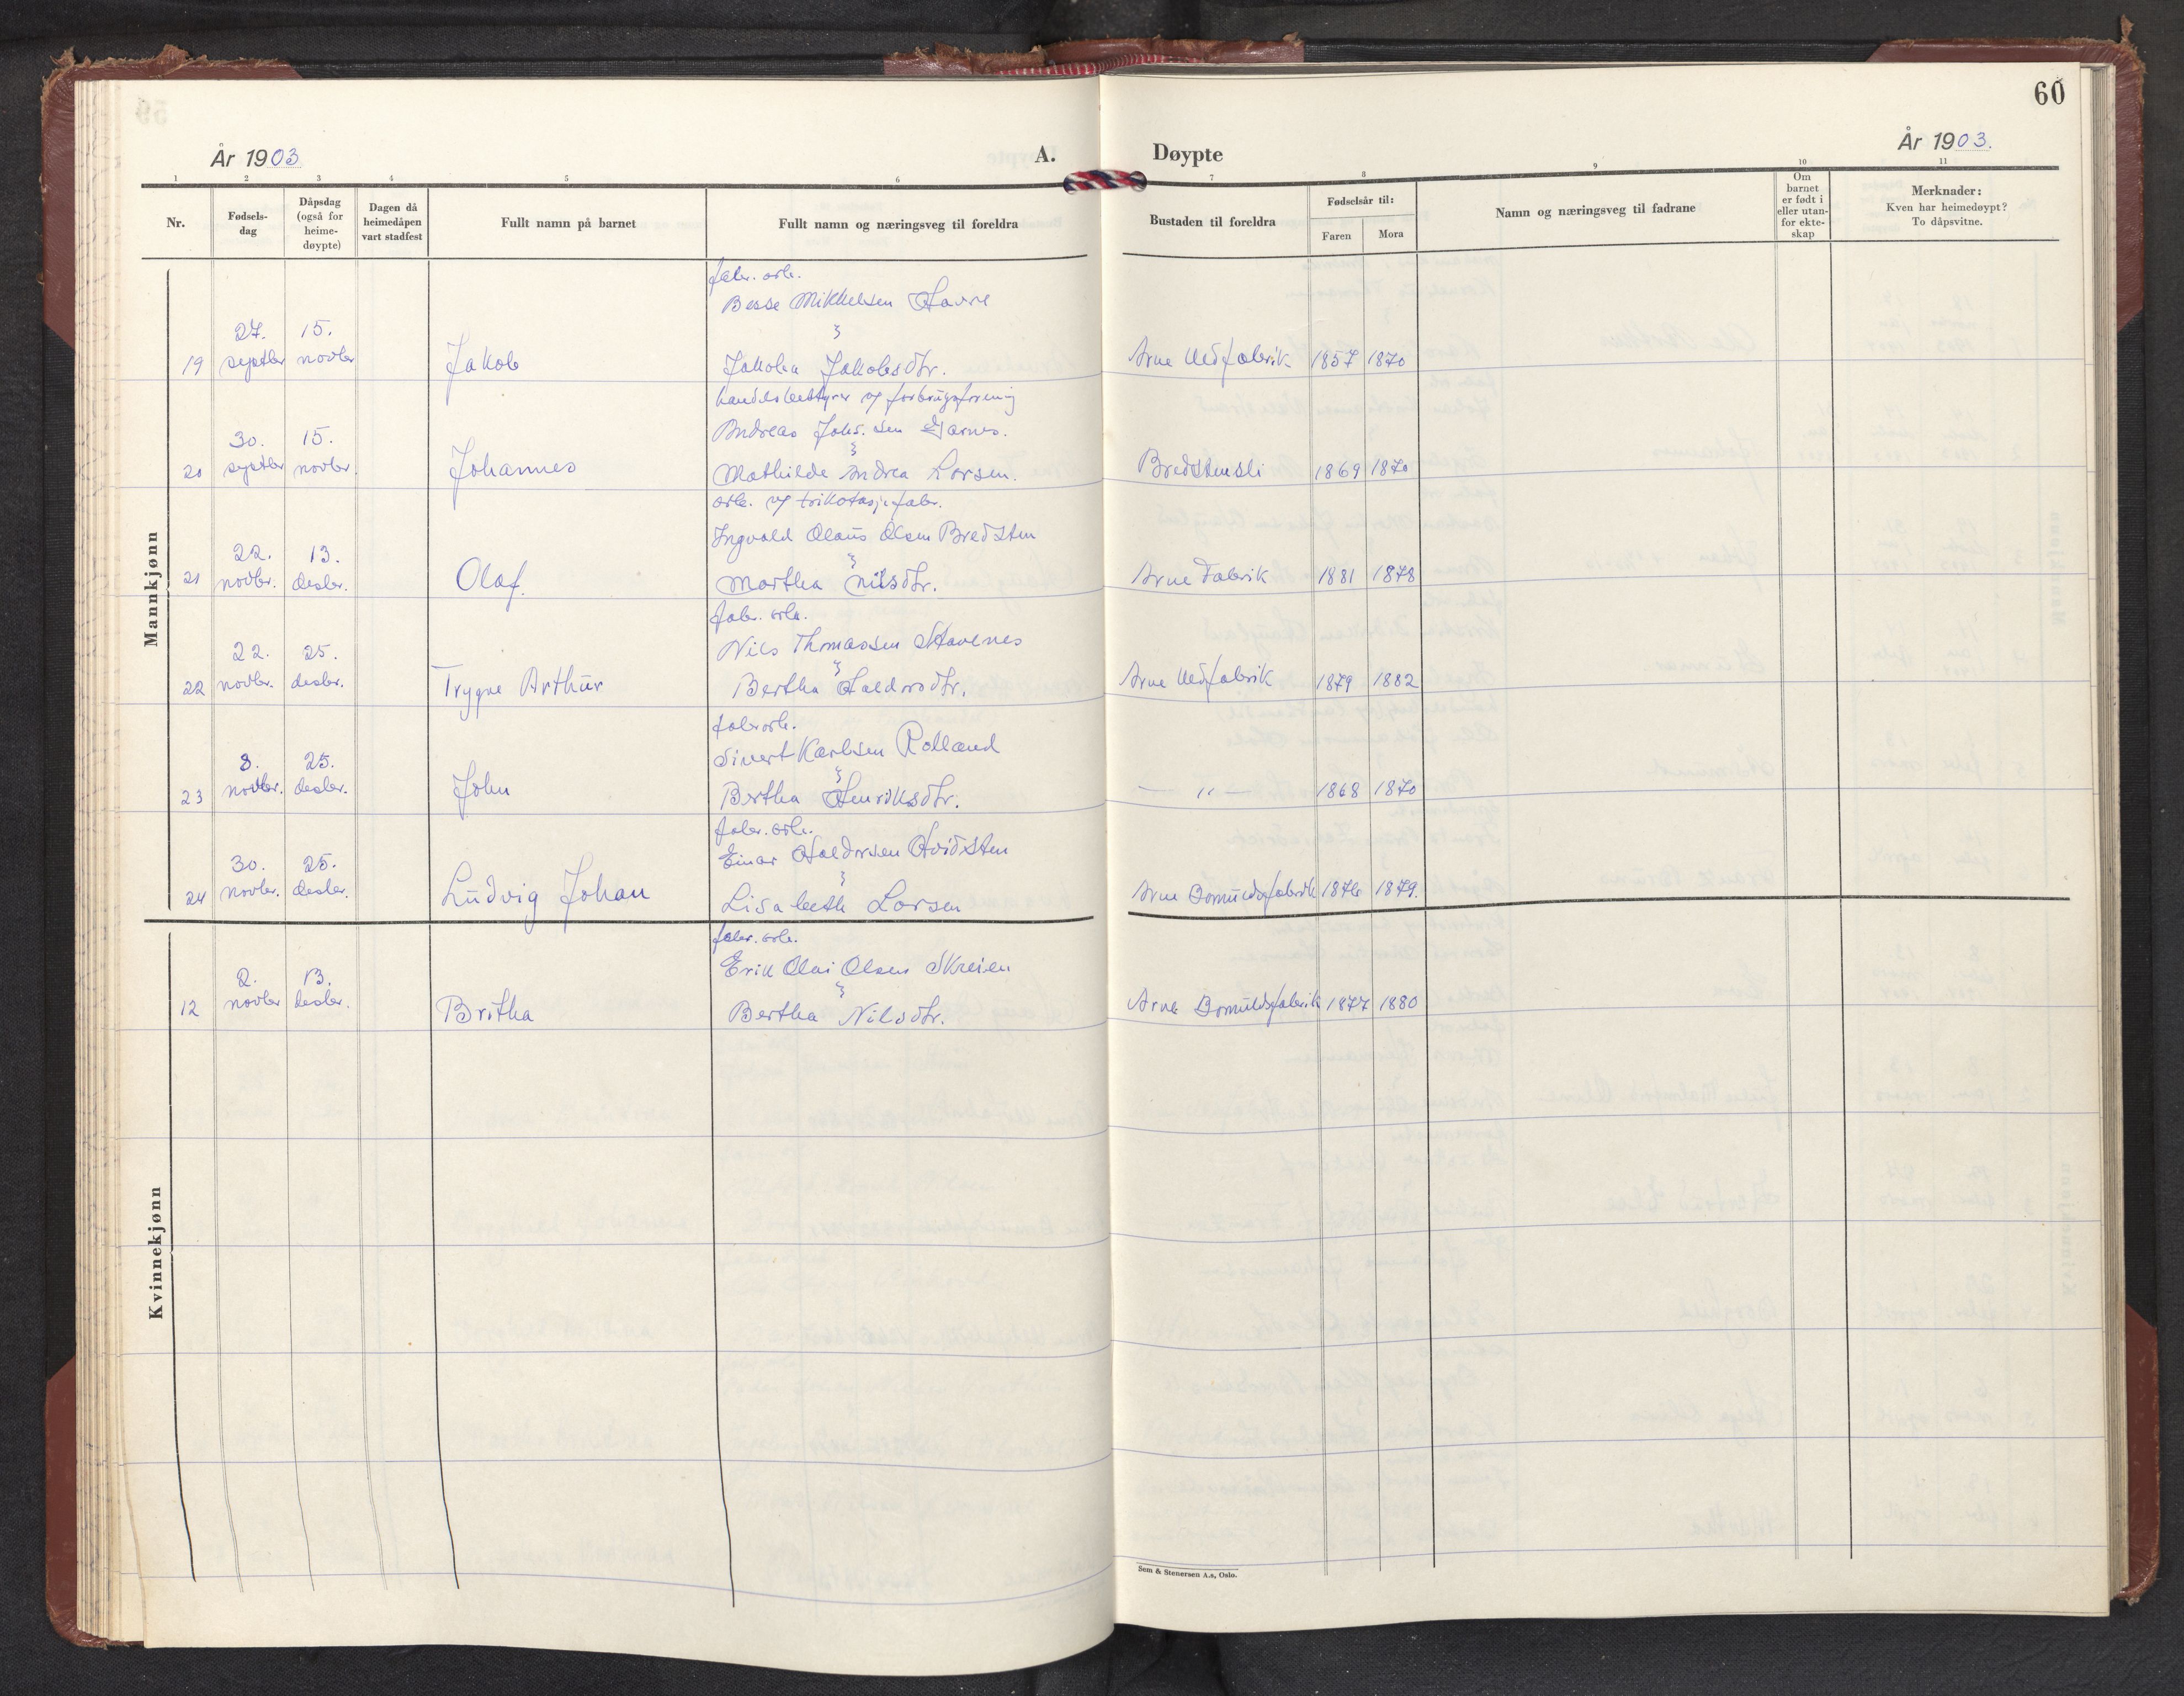 60
År 1903
A.
Døypte
År 1903.
1 2 3 4 5 6 7 8 9 10 11
Nr.
Fødsels-
dag
Dåpsdag
(også for
heime-
døypte)
Dagen då
heimedåpen
vart stadfest
Fullt namn på barnet
Fullt namn og næringsveg til foreldra
Bustaden til foreldra
Fødselsår til:
Faren Mora
Namn og næringsveg til fadrane
Om
barnet
er født i
eller utan-
for ekte-
skap
Merknader:
Kven har heimedøypt?
To dåpsvitne.
Mannkjønn
fabr. arb.
Besse Mikkelsen Havre
27. 15.
19 septbr novbr Jakob Jakobea Jakobsdtr. Arne Uldfabrik 1857 1870
handelsbestyrer og forbrugsforening
30. 15. Andreas Johs.sen Garnes.
20 septbr novbr. Johannes Mathilde Andrea Larsen. Bredstensli 1869 1870
arb. og trikotasjefabr.
Ingvald Olaus Olsen Bredsten
22. 13.
21 novbr. desbr. Olaf. Martha Nilsdtr. Arne Fabrik 1881 1878
fabr. arb.
22. 25. Nils Thomassen Stavenes
22 novbr. desbr. Trygve Arthur Bertha Haldorsdtr. Arne Uldfabrik 1879 1882
fabr arb.
8. 25. Sivert Karlsen Rolland
23 novbr. desbr. John Bertha Henriksdtr. — " — 1868 1870
fabr. arb.
30. 25. Einar Haldorsen Hvidsten
24 novbr. desbr. Ludvig Johan Lisabeth Larsen Arne Bomuldsfabrik 1876 1879.
Kvinnekjønn
fabr. arb.
2. 13. Erik Olai Olsen Skreien
12 novbr desbr. Britha Bertha Nilsdtr. Arne Bomuldsfabrik 1877 1880
Sem & Stenersen A.s, Oslo.